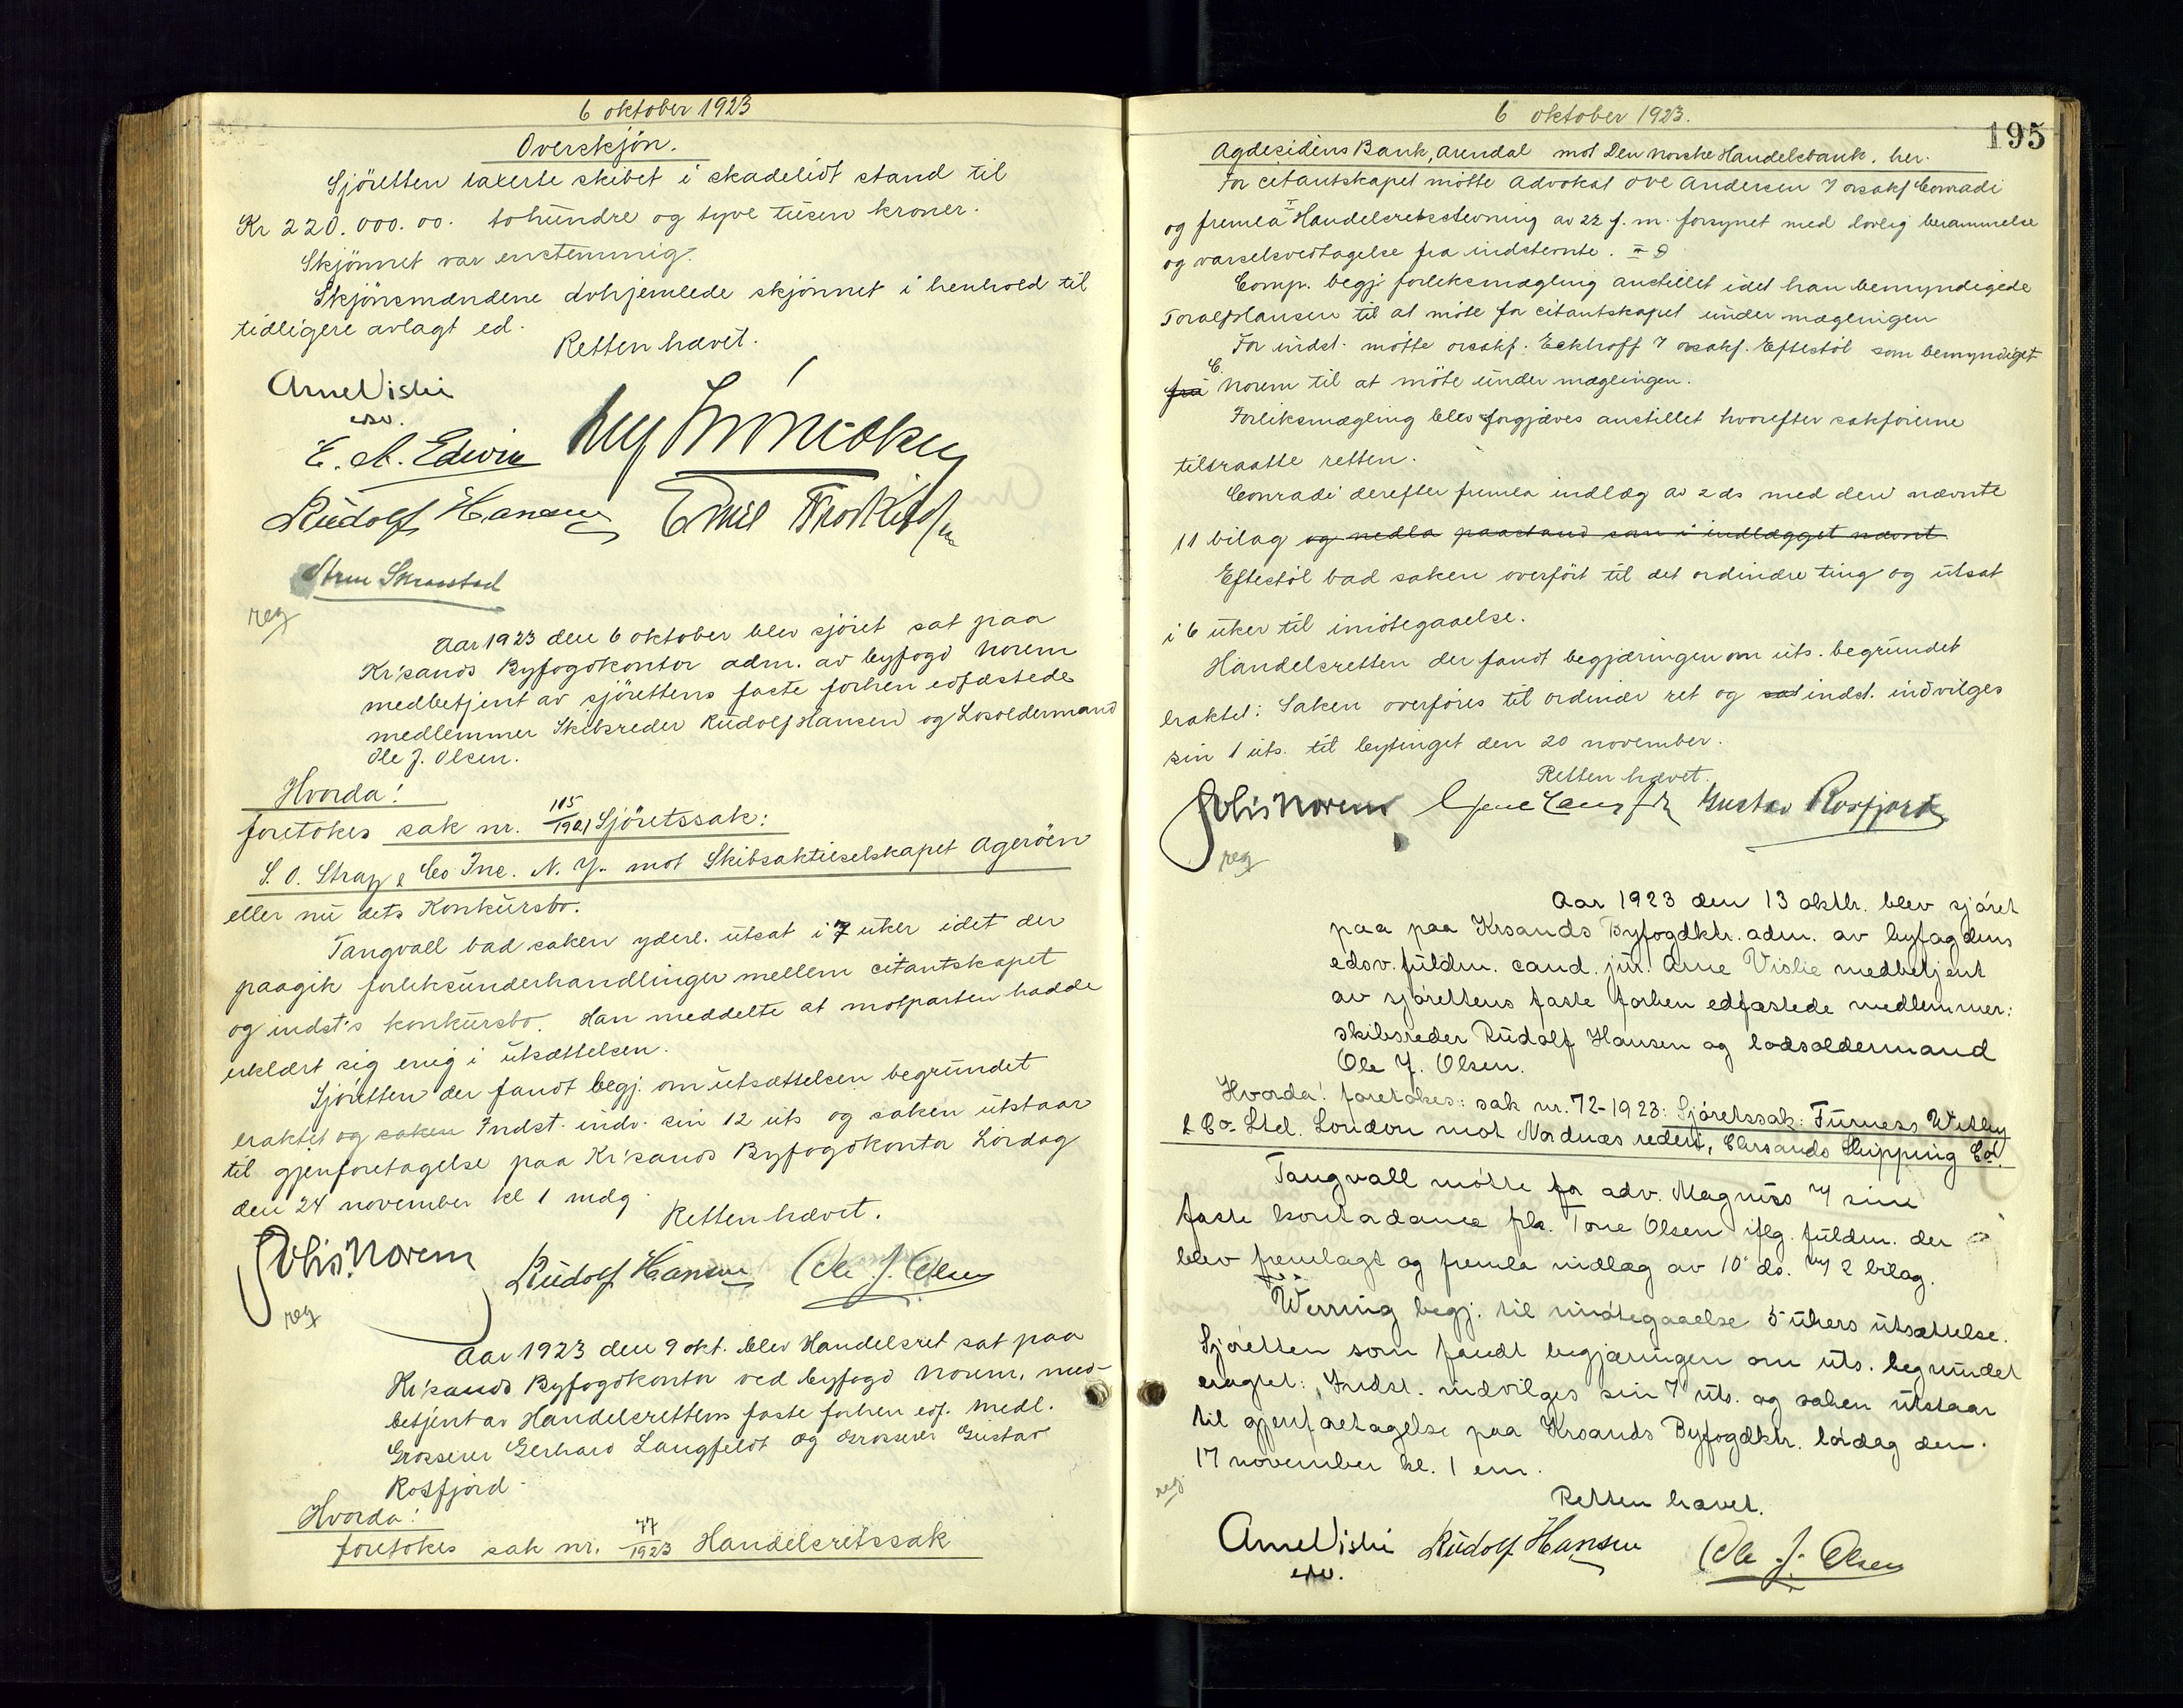 6 oktober 1923
Overskjøn.
Sjöretten taxerte skibet i skadelidt stand til
Kr 220.000.00. tohundre og tyve tusen kroner.
Skjönnet var enstemmig.
Skjönsmændene avhjemlede skjönnet i henhold til
tidligere avlagt ed.
Retten hævet.
Arne Vislie
edsv.
E. A. Edwin
Rudolf Hansen Emil
reg
Aar 1923 den 6 oktober blev sjöret sat paa
Kr'sands Byfogdkontor adm. av byfogd Norem
medbetjent av sjörettens faste forhen edfæstede
medlemmer Skibsreder Rudolf Hansen og Losoldermand
Ole J. Olsen.
Hvorda!
foretokes sak nr. 115/1921 Sjöretssak:
S. O. Stray & Co Inc. N. Y. mot Skibsaktieselskapet Ageröen
eller nu dets Konkursbo.
Tangvall bad saken yderl. utsat i 7 uker idet der
paagik forliksunderhandlinger mellem citantskapet
og indst's konkursbo. Han meddelte at motparten hadde
erklært sig enig i utsættelsen.
Sjöretten der fandt begj. om utsættelsen begrundet
eraktet og saken Indst. indv. sin 12 uts og saken utstaar
til gjenforetagelse paa Kr'sands Byfogdkontor Lördag
den 24 november kl 1 mdg.
Retten hævet.
Norem Rudolf Hansen Ole J. Olsen
reg
Aar 1923 den 9 okt. blev Handelsret sat paa
Kr'sands Byfogdkontor ved byfogd Norem, med-
betjent av Handelsrettens faste forhen edf. medl.
Grosserer Gerhard Langfeldt og Grosserer Gustav
Rosfjord.
Hvorda!
foretokes sak nr. 77/1923 Handelsretssak
6 oktober 1923.
195
Agdesidens Bank, Arendal mot Den norske Handelsbank. her.
For citantskapet mötte Advokat Ove Andersen v/ orsakf Conradi
og fremla I Handelsretsstevning av 22 f. m. forsynet med lovlig berammelse
og varselsvedtagelse fra indstevnte.
Comp. begj. forliksmægling anstillet idet han bemyndigede
Toralf Hansen til at möte for citantskapet under mæglingen
For indst. mötte orsakf. Eckhoff v/ orsakf. Eftestöl som bemyndiget
fru C. Norem til at möte under mæglingen.
Forliksmægling blev forgjæves anstillet hvorefter sakförerne
tiltraatte retten.
Conradi derefter fremla indlæg av 2 ds med deri nævnte
11 bilag og nedla paastand som i indlægget nævnt.
Eftestöl bad saken overfört til det ordinære ting og utsat
i 6 uker til imötegaaelse.
Handelsretten der fandt begjæringen om uts. begrundet
eraktet: Saken overföres til ordinær ret og sat indst. indvilges
sin 1 uts. til bytinget den 20 november.
Retten hævet.
Norem Gustav Rosfjord
reg
Aar 1923 den 13 oktbr. blev sjöret
paa paa Krsands Byfogdktr. adm. av byfogdens
edsv. fuldm. cand. jur. Arne Vislie medbetjent
av sjörettens faste forhen edfæstede medlemmer:
skibsreder Rudolf Hansen og lodsoldermand
Ole J. Olsen.
Hvorda! foretokes: sak nr. 72-1923: Sjöretssak: Furness Withy
& Co. Ltd. London mot Nordnæs rederi, Chrsands Shipping Co.
Tangvall mötte for adv. Magnus v/ sine
faste kontordame frk. Tone Olsen iflg. fuldm. der
blev fremlagt og fremla indlæg av 10 ds. m/ 2 bilag.
Werring begj. til imötegaaelse 5 ukers utsættelse.
Sjöretten som fandt begjæringen om uts. begrundet
eragtet: Indst. indvilges sin 7 uts. og saken utstaar
til gjenforetagelse paa Krsands Byfogdktr. lördag den
17 november kl. 1 em.
reg
Retten hævet.
Arne Vislie Rudolf Hansen Ole J. Olsen
edsv.